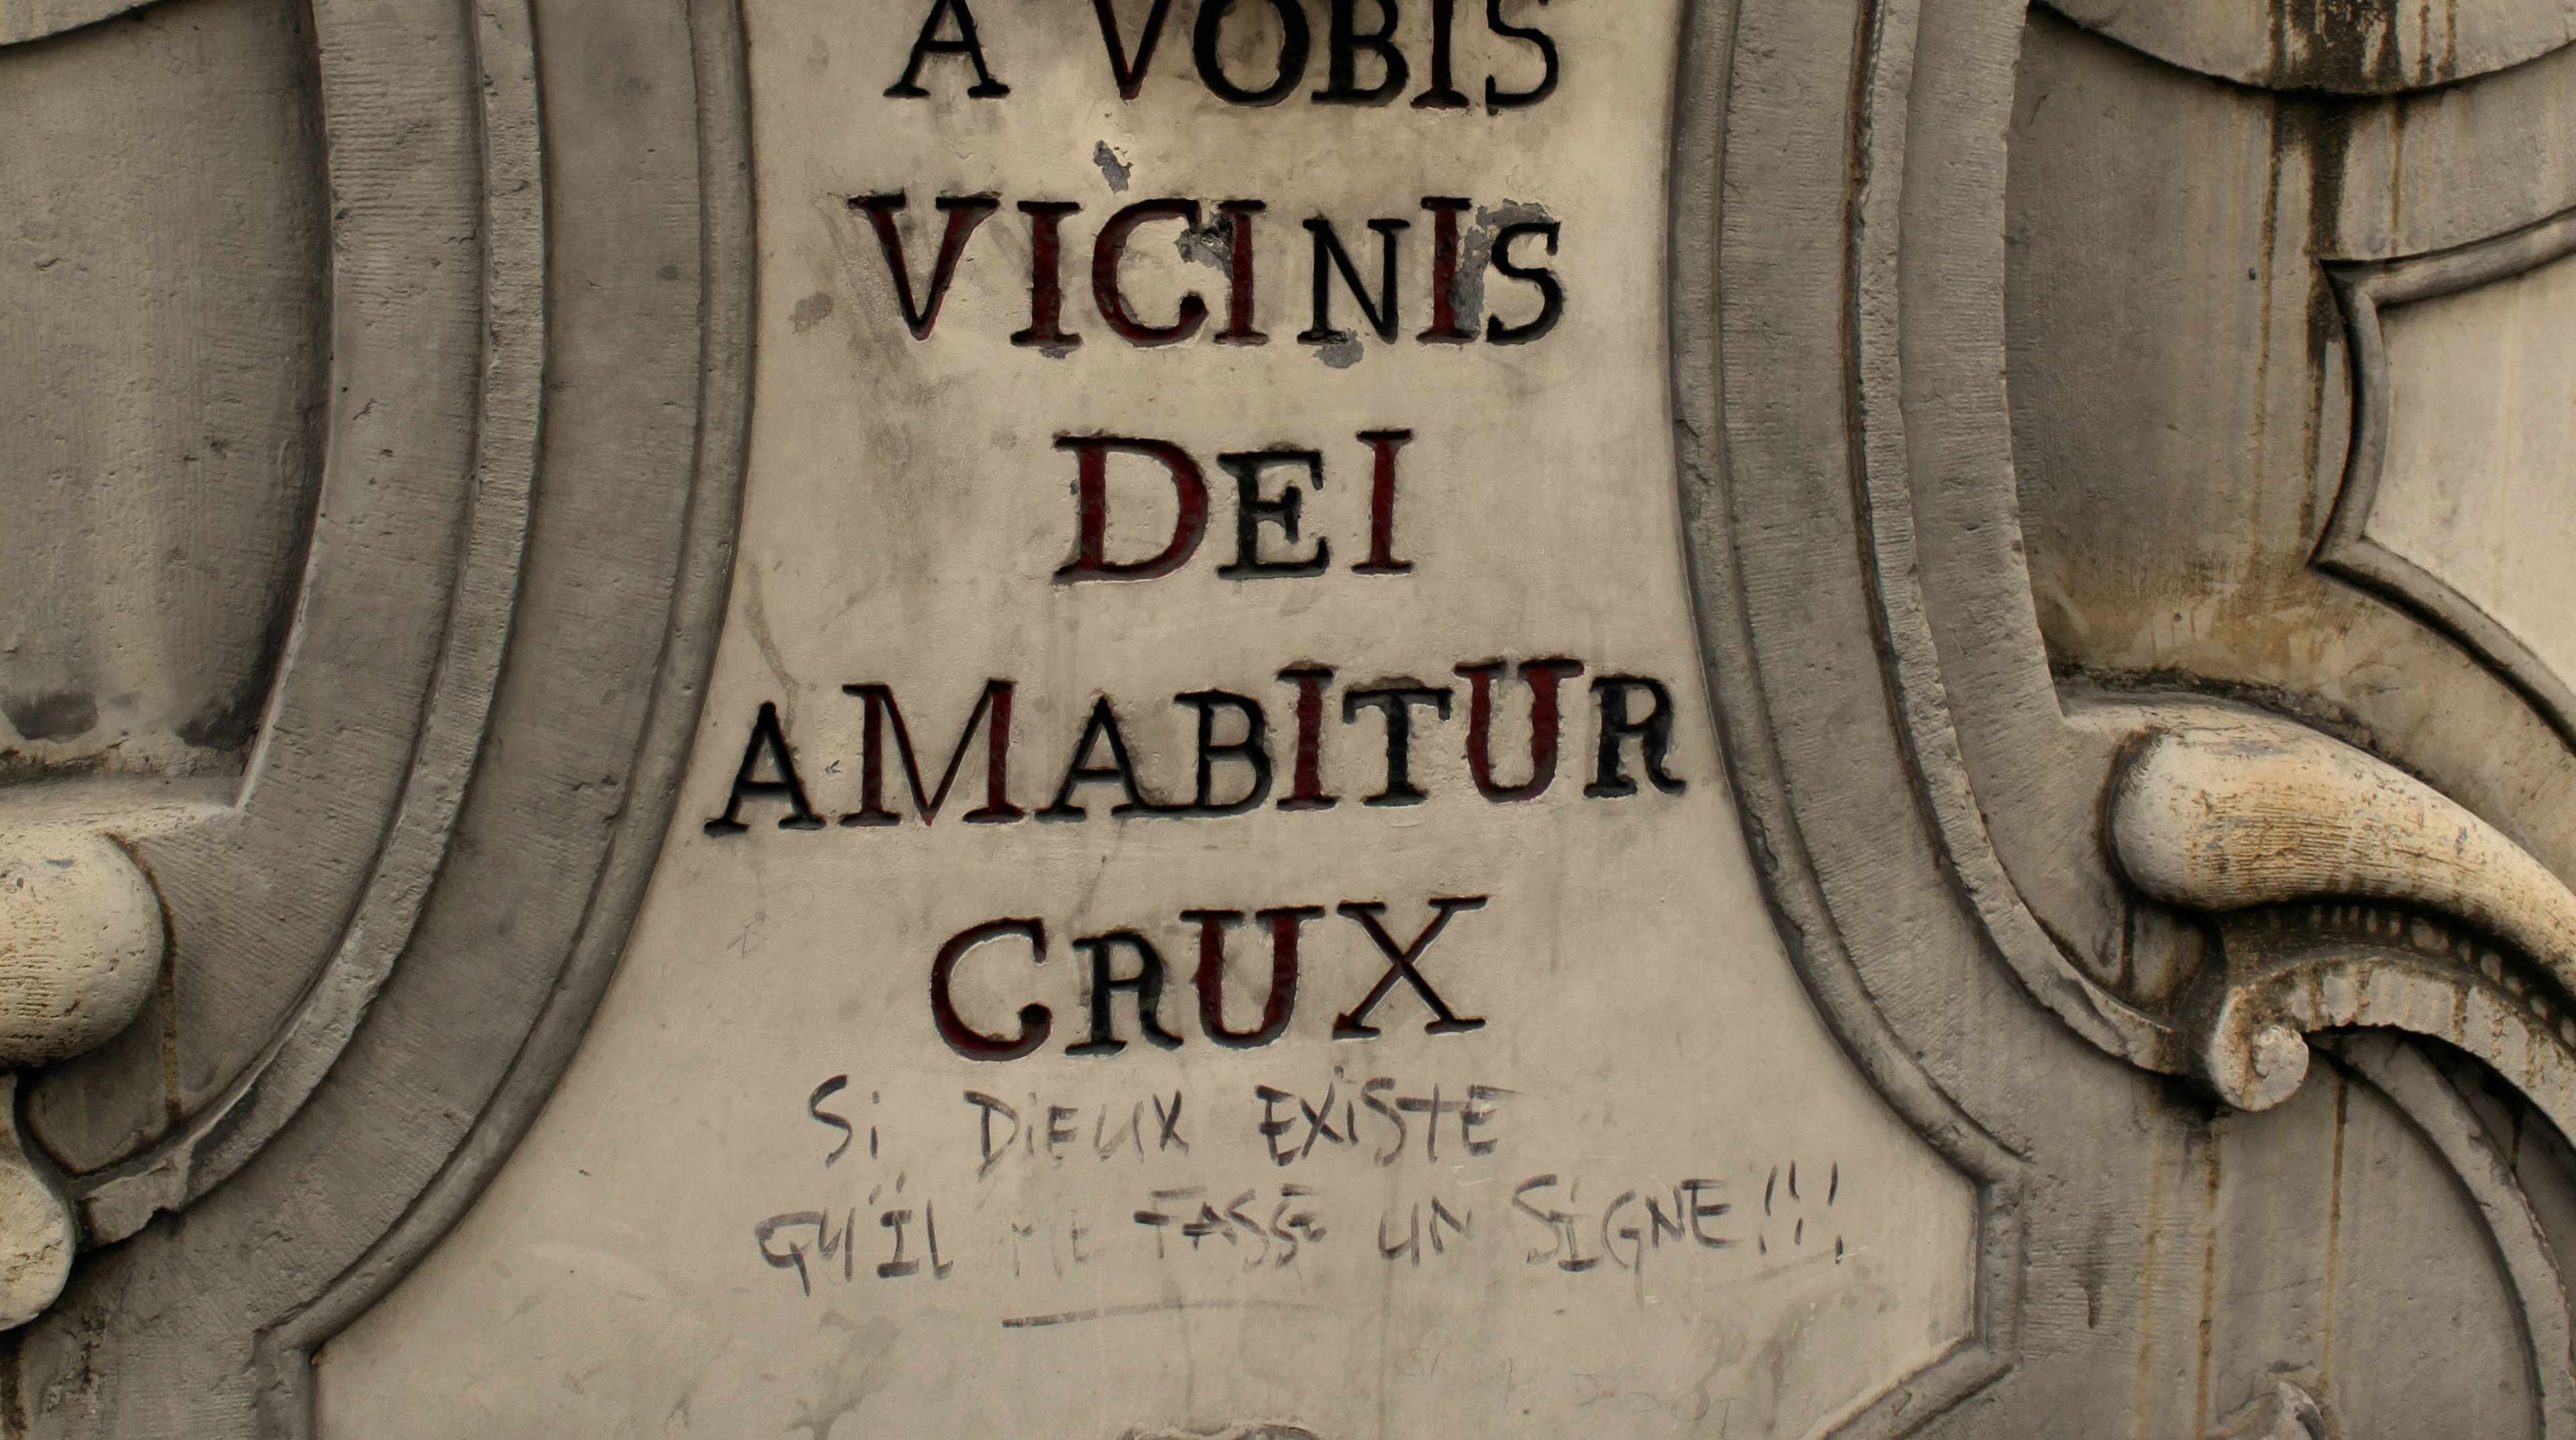 A VOBIS
VICINIS
DEI
AMABITUR
CRUX
Si DiEUX EXiSTE
QU'IL ME FASSE UN SiGNE!!!